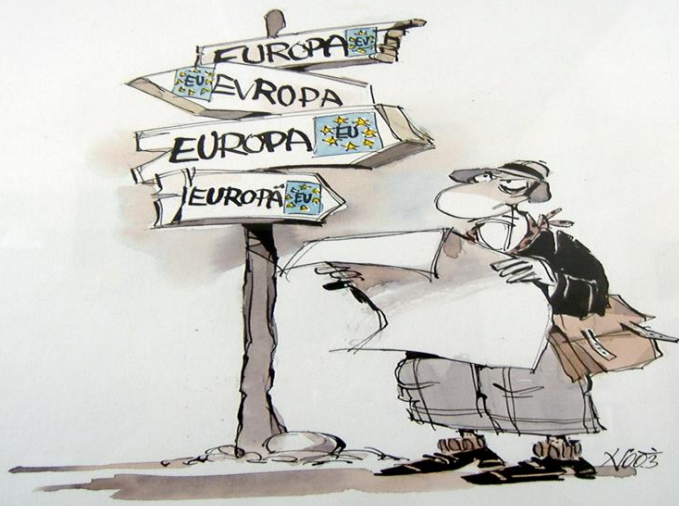 EUROPA EU
EU EVROPA
EUROPA EU
EUROPÄ EU